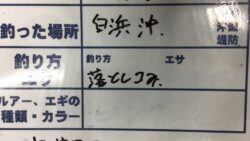 釣った場所 白浜沖.
堤防
釣り方 釣り方 エサ
落としコミ
ルアー、エギの
種類・カラー